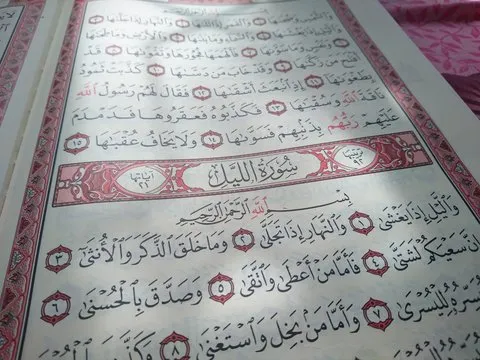 وَٱلشَّمْسِ وَضُحَىٰهَا ١ وَٱلْقَمَرِ إِذَا تَلَىٰهَا ٢ وَٱلنَّهَارِ إِذَا جَلَّىٰهَا
٣ وَٱلَّيْلِ إِذَا يَغْشَىٰهَا ٤ وَٱلسَّمَآءِ وَمَا بَنَىٰهَا ٥ وَٱلْأَرْضِ وَمَا طَحَىٰهَا
٦ وَنَفْسٍ وَمَا سَوَّىٰهَا ٧ فَأَلْهَمَهَا فُجُورَهَا وَتَقْوَىٰهَا ٨ قَدْ
أَفْلَحَ مَن زَكَّىٰهَا ٩ وَقَدْ خَابَ مَن دَسَّىٰهَا ١٠ كَذَّبَتْ ثَمُودُ
بِطَغْوَىٰهَا ١١ إِذِ ٱنۢبَعَثَ أَشْقَىٰهَا ١٢ فَقَالَ لَهُمْ رَسُولُ ٱللَّهِ
نَاقَةَ ٱللَّهِ وَسُقْيَٰهَا ١٣ فَكَذَّبُوهُ فَعَقَرُوهَا فَدَمْدَمَ
عَلَيْهِمْ رَبُّهُم بِذَنۢبِهِمْ فَسَوَّىٰهَا ١٤ وَلَا يَخَافُ عُقْبَٰهَا ١٥
ترتيبها ٩٢ سُورَةُ اللَّيْلِ آياتها ٢١
بِسْمِ ٱللَّهِ ٱلرَّحْمَٰنِ ٱلرَّحِيمِ
وَٱلَّيْلِ إِذَا يَغْشَىٰ ١ وَٱلنَّهَارِ إِذَا تَجَلَّىٰ ٢ وَمَا خَلَقَ ٱلذَّكَرَ وَٱلْأُنثَىٰٓ ٣
إِنَّ سَعْيَكُمْ لَشَتَّىٰ ٤ فَأَمَّا مَنْ أَعْطَىٰ وَٱتَّقَىٰ ٥ وَصَدَّقَ بِٱلْحُسْنَىٰ ٦
لِلْيُسْرَىٰ ٧ وَأَمَّا مَنۢ بَخِلَ وَٱسْتَغْنَىٰ ٨ وَكَذَّبَ